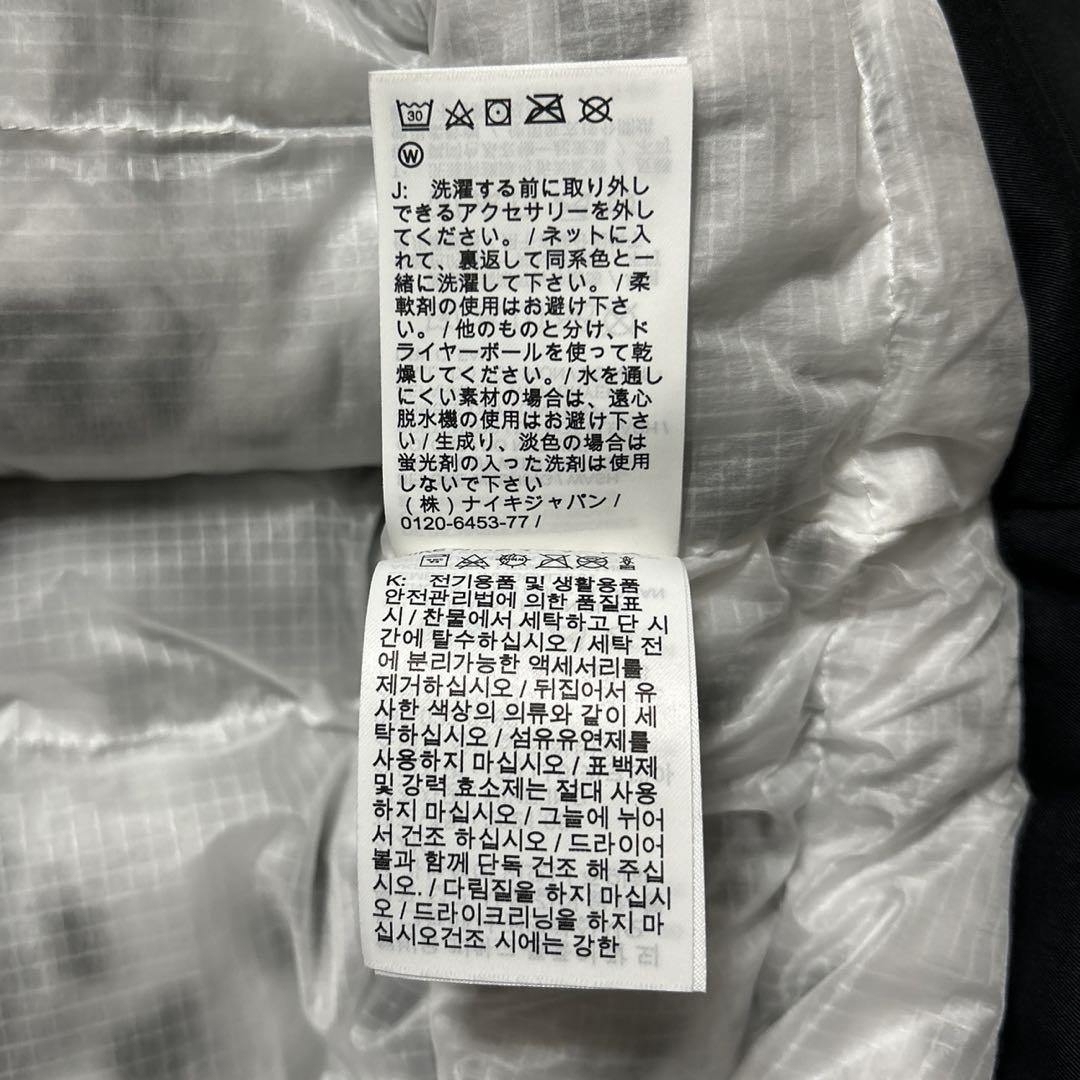 30
W
J: 洗濯する前に取り外し
できるアクセサリーを外し
てください。/ ネットに入
れて、裏返して同系色と一
緒に洗濯して下さい。/ 柔
軟剤の使用はお避け下さ
い。/ 他のものと分け、ド
ライヤーボールを使って乾
燥してください。/ 水を通し
にくい素材の場合は、遠心
脱水機の使用はお避け下さ
い / 生成り、淡色の場合は
蛍光剤の入った洗剤は使用
しないで下さい
(株) ナイキジャパン /
0120-6453-77 /
K: 전기용품 및 생활용품
안전관리법에 의한 품질표
시 / 찬물에서 세탁하고 단 시
간에 탈수하십시오 / 세탁 전
에 분리가능한 액세서리를
제거하십시오 / 뒤집어서 유
사한 색상의 의류와 같이 세
탁하십시오 / 섬유유연제를
사용하지 마십시오 / 표백제
및 강력 효소제는 절대 사용
하지 마십시오 / 그늘에 뉘어
서 건조 하십시오 / 드라이어
볼과 함께 단독 건조 해 주십
시오. / 다림질을 하지 마십시
오 / 드라이크리닝을 하지 마
십시오건조 시에는 강한